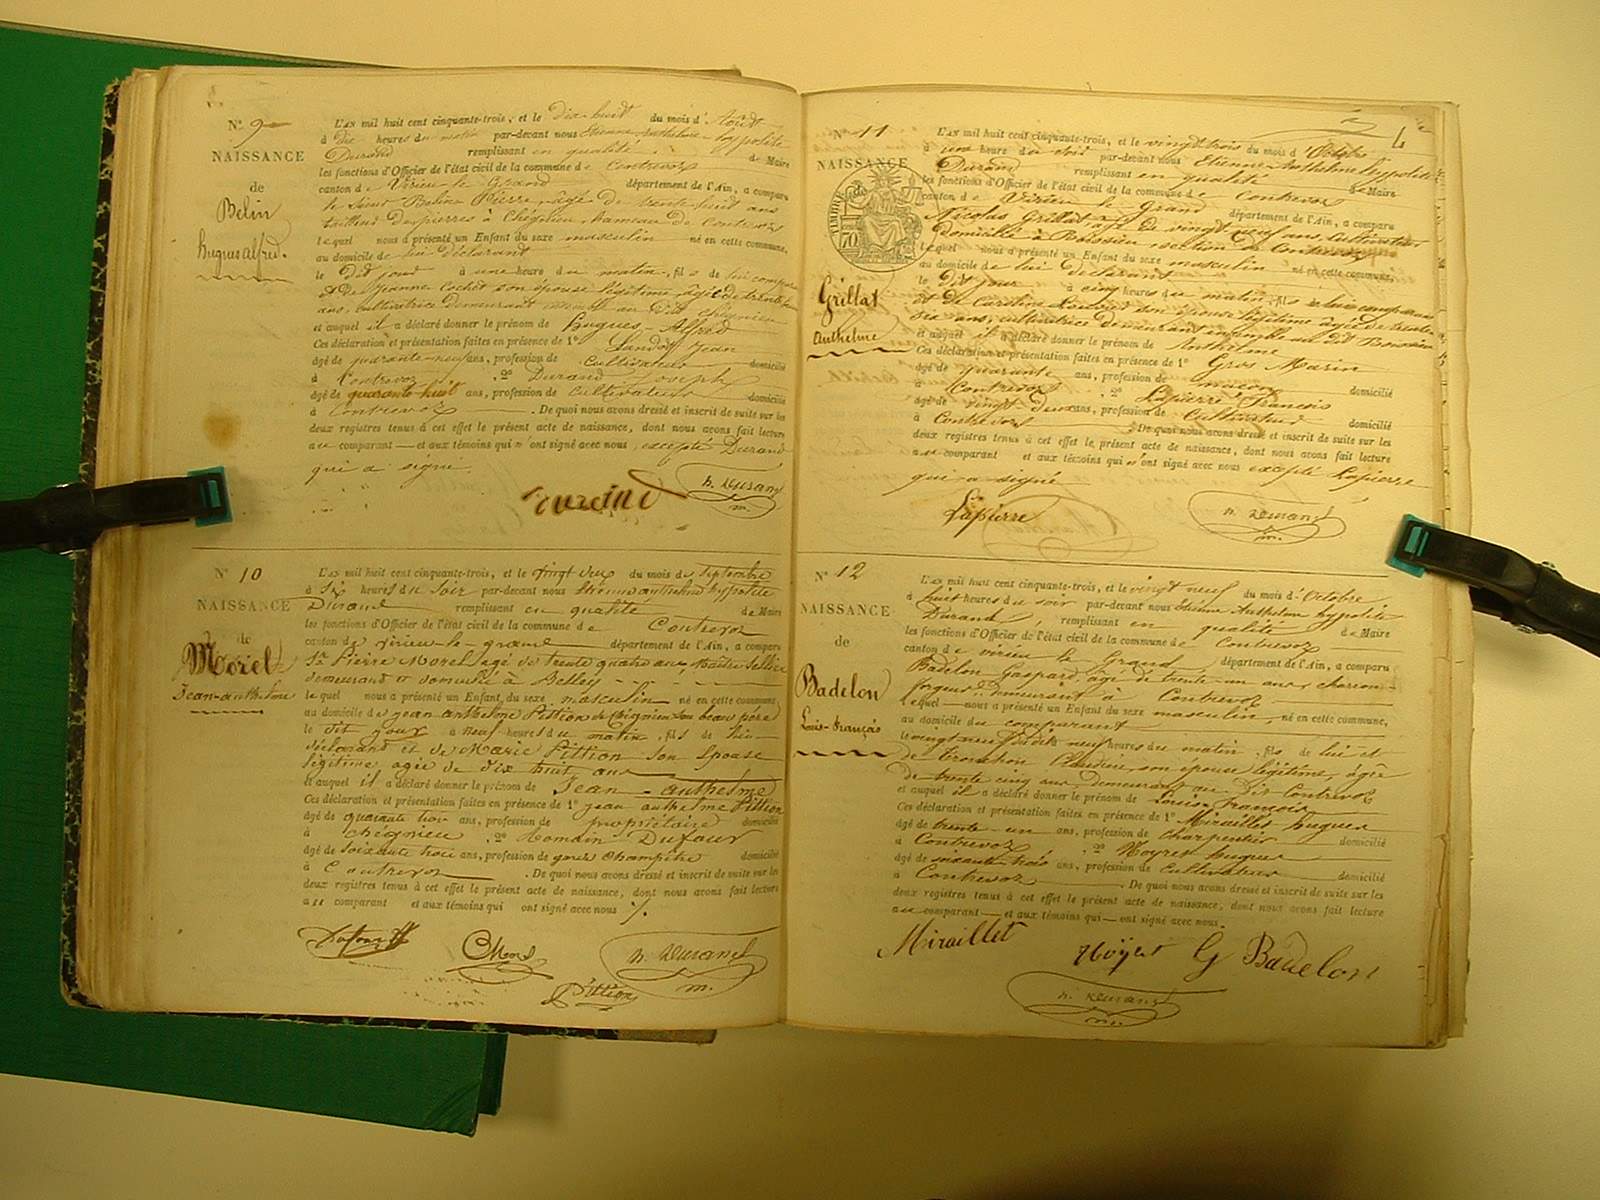 N° 9
NAISSANCE
de
Belin
hugues alfred.
L'AN mil huit cent cinquante-trois, et le Dix-huit du mois d'Août
à Dix heures du matin par-devant nous Etienne Anthelme hyppolite
Durand remplissant en qualité de Maire
les fonctions d'Officier de l'état civil de la commune de Contrevoz
canton de Virieu-le-Grand département de l'Ain, a comparu
le sieur Belin Pierre, âgé de trente-huit ans
tailleur de pierres à Chégnieu, hameau de Contrevoz
lequel nous a présenté un Enfant du sexe masculin né en cette commune,
au domicile de lui déclarant
le Dit jour à une heure du matin, fils de lui compar
et de Jeanne Cochet son épouse légitime, âgée de trente
ans, cultivatrice demeurant au Dit Chégnieu
et auquel il a déclaré donner le prénom de Hugues-Alfred
Ces déclaration et présentation faites en présence de 1° Jean
âgé de quarante-neuf ans, profession de Cultivateur domicilié
à Contrevoz 2° Durand Joseph
âgé de quarante-huit ans, profession de Cultivateur domicilié
à Contrevoz . De quoi nous avons dressé et inscrit de suite sur les
deux registres tenus à cet effet le présent acte de naissance, dont nous avons fait lecture
au comparant — et aux témoins qui n'ont signé avec nous, excepté Durand
qui a signé.
h. Durand
m.
N° 10
NAISSANCE
de
Morel
Jean-anthelme
L'AN mil huit cent cinquante-trois, et le vingt deux du mois de Septembre
à Six heures du Soir par-devant nous Etienne anthelme hyppolite
Durand remplissant en qualité de Maire
les fonctions d'Officier de l'état civil de la commune de Contrevoz
canton de virieu-le-grand département de l'Ain, a comparu
Sr Pierre Morel agé de trente quatre ans, Maître Sellier
demeurant et domicilié à Belley
lequel nous a présenté un Enfant du sexe masculin né en cette commune
au domicile de jean anthelme Pittion de Chégnieu son beau père
le dit jour à neuf heures du matin, fils de lui
déclarant et de Marie Pittion Son Epouse
légitime agée de dix huit ans
et auquel il a déclaré donner le prénom de Jean-anthelme
Ces déclaration et présentation faites en présence de 1° jean anthelme Pittion
âgé de quarante trois ans, profession de propriétaire domicilié
à Chégnieu . 2° Romain Dufour
âgé de soixante trois ans, profession de garde Champêtre domicilié
à Contrevoz . De quoi nous avons dressé et inscrit de suite sur les
deux registres tenus à cet effet le présent acte de naissance, dont nous avons fait lecture
au comparant et aux témoins qui ont signé avec nous
Dufour
Morel
h. Durand
m.
Pittion
N° 11
NAISSANCE
TIMBRE
70
Grillat
Anthelme
L'AN mil huit cent cinquante-trois, et le vingt-trois du mois d'Octobre
à une heure du soir par-devant nous Etienne-Anthelme hyppolite
Durand remplissant en qualité de Maire
les fonctions d'Officier de l'état civil de la commune de Contrevoz
canton de Virieu le Grand département de l'Ain, a comparu
Nicolas Grillat âgé de vingt-neuf ans, Cultivateur
domicilié à Boissieu section de Contrevoz
lequel nous a présenté un Enfant du sexe masculin né en cette commune
au domicile de lui déclarant
le Dit jour à cinq heures du matin, fils de lui comparant
et de Caroline son épouse légitime âgée de
dix ans, cultivatrice demeurant ensemble au dit Boissieu
et auquel il a déclaré donner le prénom de Anthelme
Ces déclaration et présentation faites en présence de 1° Gros Marin
âgé de quarante ans, profession de maçon domicilié
à Contrevoz . 2° Lapierre François
âgé de vingt-deux ans, profession de Cultivateur domicilié
à Contrevoz . De quoi nous avons dressé et inscrit de suite sur les
deux registres tenus à cet effet le présent acte de naissance, dont nous avons fait lecture
au comparant et aux témoins qui n'ont signé avec nous excepté Lapierre
qui a signé
Lapierre
h. Durand
m.
N° 12
NAISSANCE
de
Badelon
Louis-françois
L'AN mil huit cent cinquante-trois, et le vingt neuf du mois d'Octobre
à huit heures du soir par-devant nous Etienne Anthelme hyppolite
Durand, remplissant en qualité de Maire
les fonctions d'Officier de l'état civil de la commune de Contrevoz
canton de virieu le Grand département de l'Ain, a comparu
Badelon Gaspard, âgé de trente-un ans, charron-
forgeur, demeurant à Contrevoz
lequel — nous a présenté un Enfant du sexe masculin, né en cette commune,
au domicile du comparant
le vingt neuf du dit à neuf heures du matin, fils de lui et
de Tronchon Claudine, son épouse légitime, âgée
de trente cinq ans, demeurant au Dit Contrevoz
et auquel il a déclaré donner le prénom de Louis-François
Ces déclaration et présentation faites en présence de 1° Miraillet hugues
âgé de trente-un ans, profession de charpentier domicilié
à Contrevoz . 2° Noyret hugues
âgé de soixante-trois ans, profession de Cultivateur domicilié
à Contrevoz . De quoi nous avons dressé et inscrit de suite sur les
deux registres tenus à cet effet le présent acte de naissance, dont nous avons fait lecture
au comparant — et aux témoins qui — ont signé avec nous.
Miraillet
Noÿret
G Badelon
h. Durand
m.